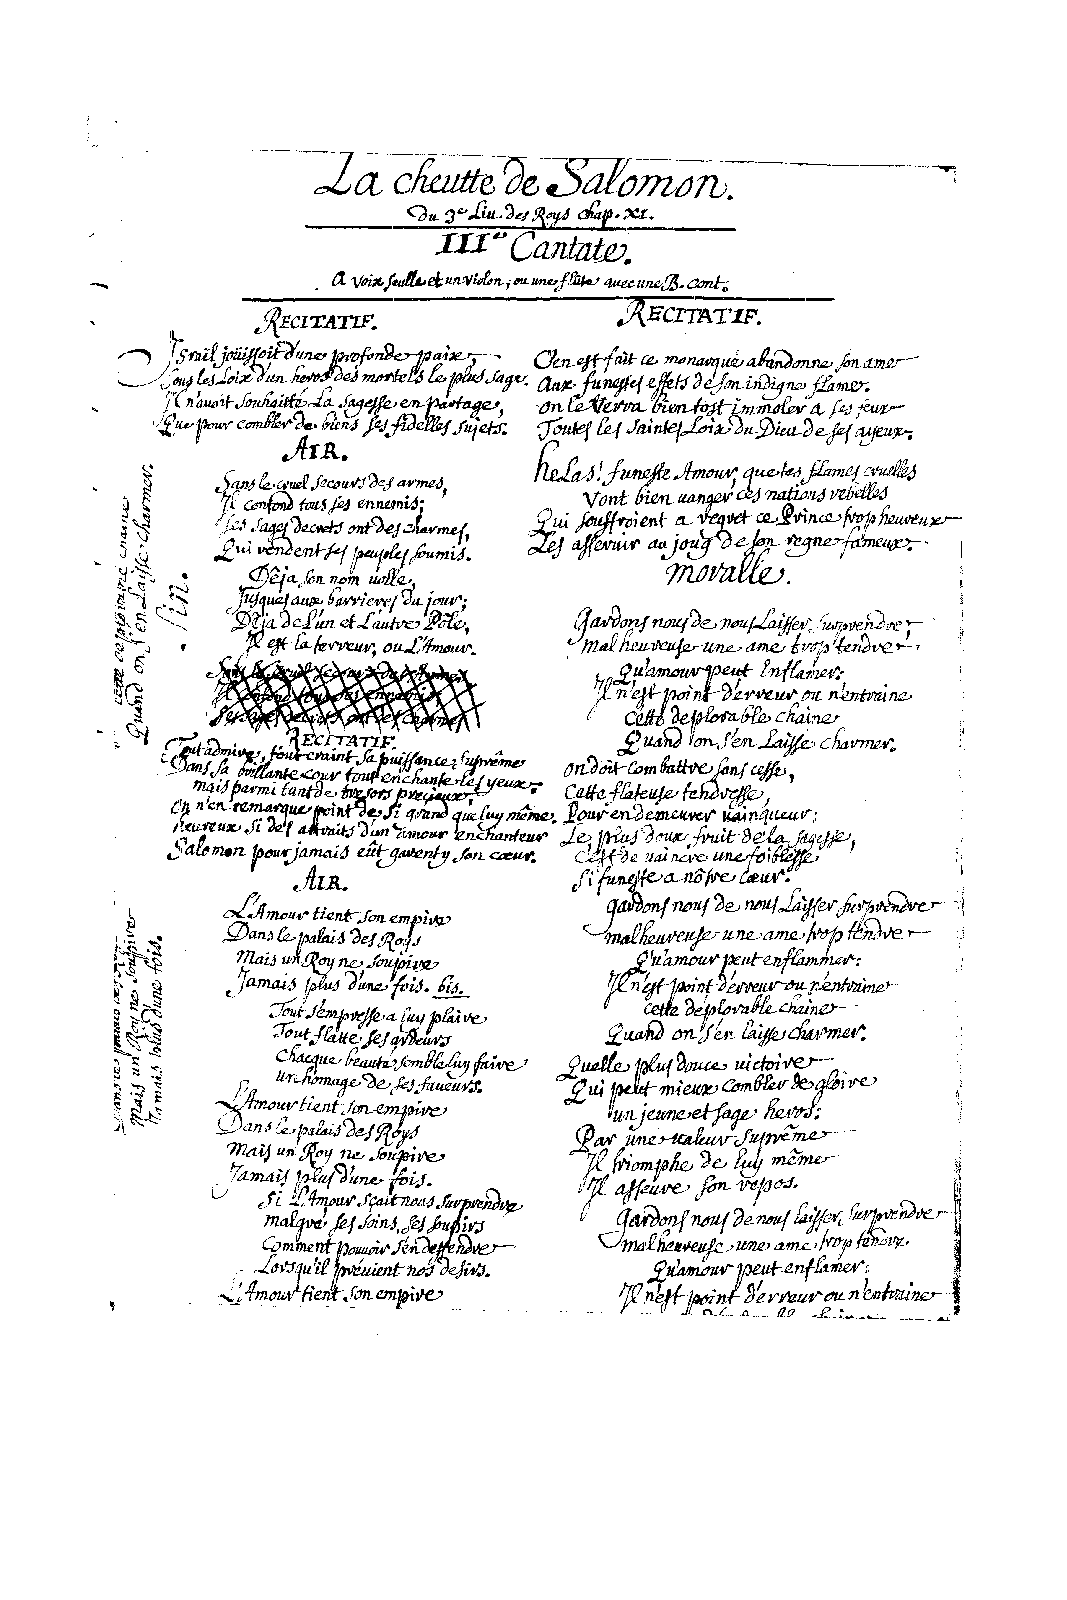 La cheutte de Salomon.
du 3e Liu. des Roys chap. XI.
IIIe Cantate.
A voix seulle et un violon, ou une flûte avec une B. cont.
RECITATIF.
Israïl joüissoit d'une profonde paix,
Sous les Loix d'un heros des mortels le plus sage.
Il n'avoit souhaitté La sagesse en partage,
Que pour combler de biens ses fidelles sujets.
AIR.
Sans le cruel secours des armes,
Il confond tous ses ennemis;
Ses sages decrets ont des charmes,
Qui rendent ses peuples soumis.
Dêja son nom volle,
Jusques aux barrieres du jour;
Dêja de L'un et L'autre Pôle,
Il est la terreur, ou L'Amour.
Sans le cruel secours des Armes,
Il confond tous ses ennemis
Ses sages decrets ont des charmes
RECITATIF.
Tout admire, tout craint sa puissance suprême
Dans sa brillante cour tout enchante les yeux
mais parmi tant de tresors precieux,
On n'en remarque point de si grand que luy même.
heureux si des attraits d'un amour enchanteur
Salomon pour jamais eût garenty son cœur.
AIR.
L'Amour tient son empire
Dans le palais des Roys
Mais un Roy ne soupire
Jamais plus d'une fois. bis.
Tout s'empresse a luy plaire
Tout flatte ses ardeurs
Chacque beauté semble luy faire
un homage de ses faveurs.
L'Amour tient son empire
Dans le palais des Roys
Mais un Roy ne soupire
Jamais plus d'une fois.
Si L'Amour sçait nous surprendre
malgré ses soins, ses soupirs
Comment pouvoir s'en deffendre
Lorsqu'il prévient nos desirs.
L'Amour tient son empire
Dans le palais des Roys
Mais un Roy ne soupire
Jamais plus d'une fois.
RECITATIF.
C'en est fait ce monarque abandonne son ame
Aux funestes effets de son indigne flame.
on le verra bien tost immoler a ses feux
Toutes les saintes Loix du Dieu de ses ayeux.
helas! funeste Amour, que tes flames cruelles
Vont bien vanger ces nations rebelles
Qui souffroient a regret ce Prince trop heureux
Les asservir au joug de son regne fameux.
moralle.
Gardons nous de nous Laisser surprendre,
malheureuse une ame trop tendre
Qu'amour peut Enflamer:
Il n'est point d'erreur ou n'entraine
Cette deplorable chaîne
Quand on s'en Laisse charmer.
on doit combattre sans cesse,
Cette flateuse tendresse,
Pour en demeurer vainqueur;
Le plus doux fruit de la sagesse,
C'est de vaincre une foiblesse
Si funeste a nôtre cœur.
gardons nous de nous Laisser surprendre
malheureuse une ame trop tendre
Qu'amour peut enflammer:
Il n'est point d'erreur ou n'entraine
cette déplorable chaîne
Quand on s'en laisse charmer.
Quelle plus douce victoire
Qui peut mieux combler de gloire
un jeune et sage heros:
Par une valeur suprême
Il triomphe de luy même
Il asseure son repos.
Gardons nous de nous laisser surprendre
malheureuse une ame trop tendre
Qu'amour peut enflamer:
Il n'est point d'erreur ou n'entraine
Cette deplorable chaine
Quand on s'en Laisse charmer.
fin.